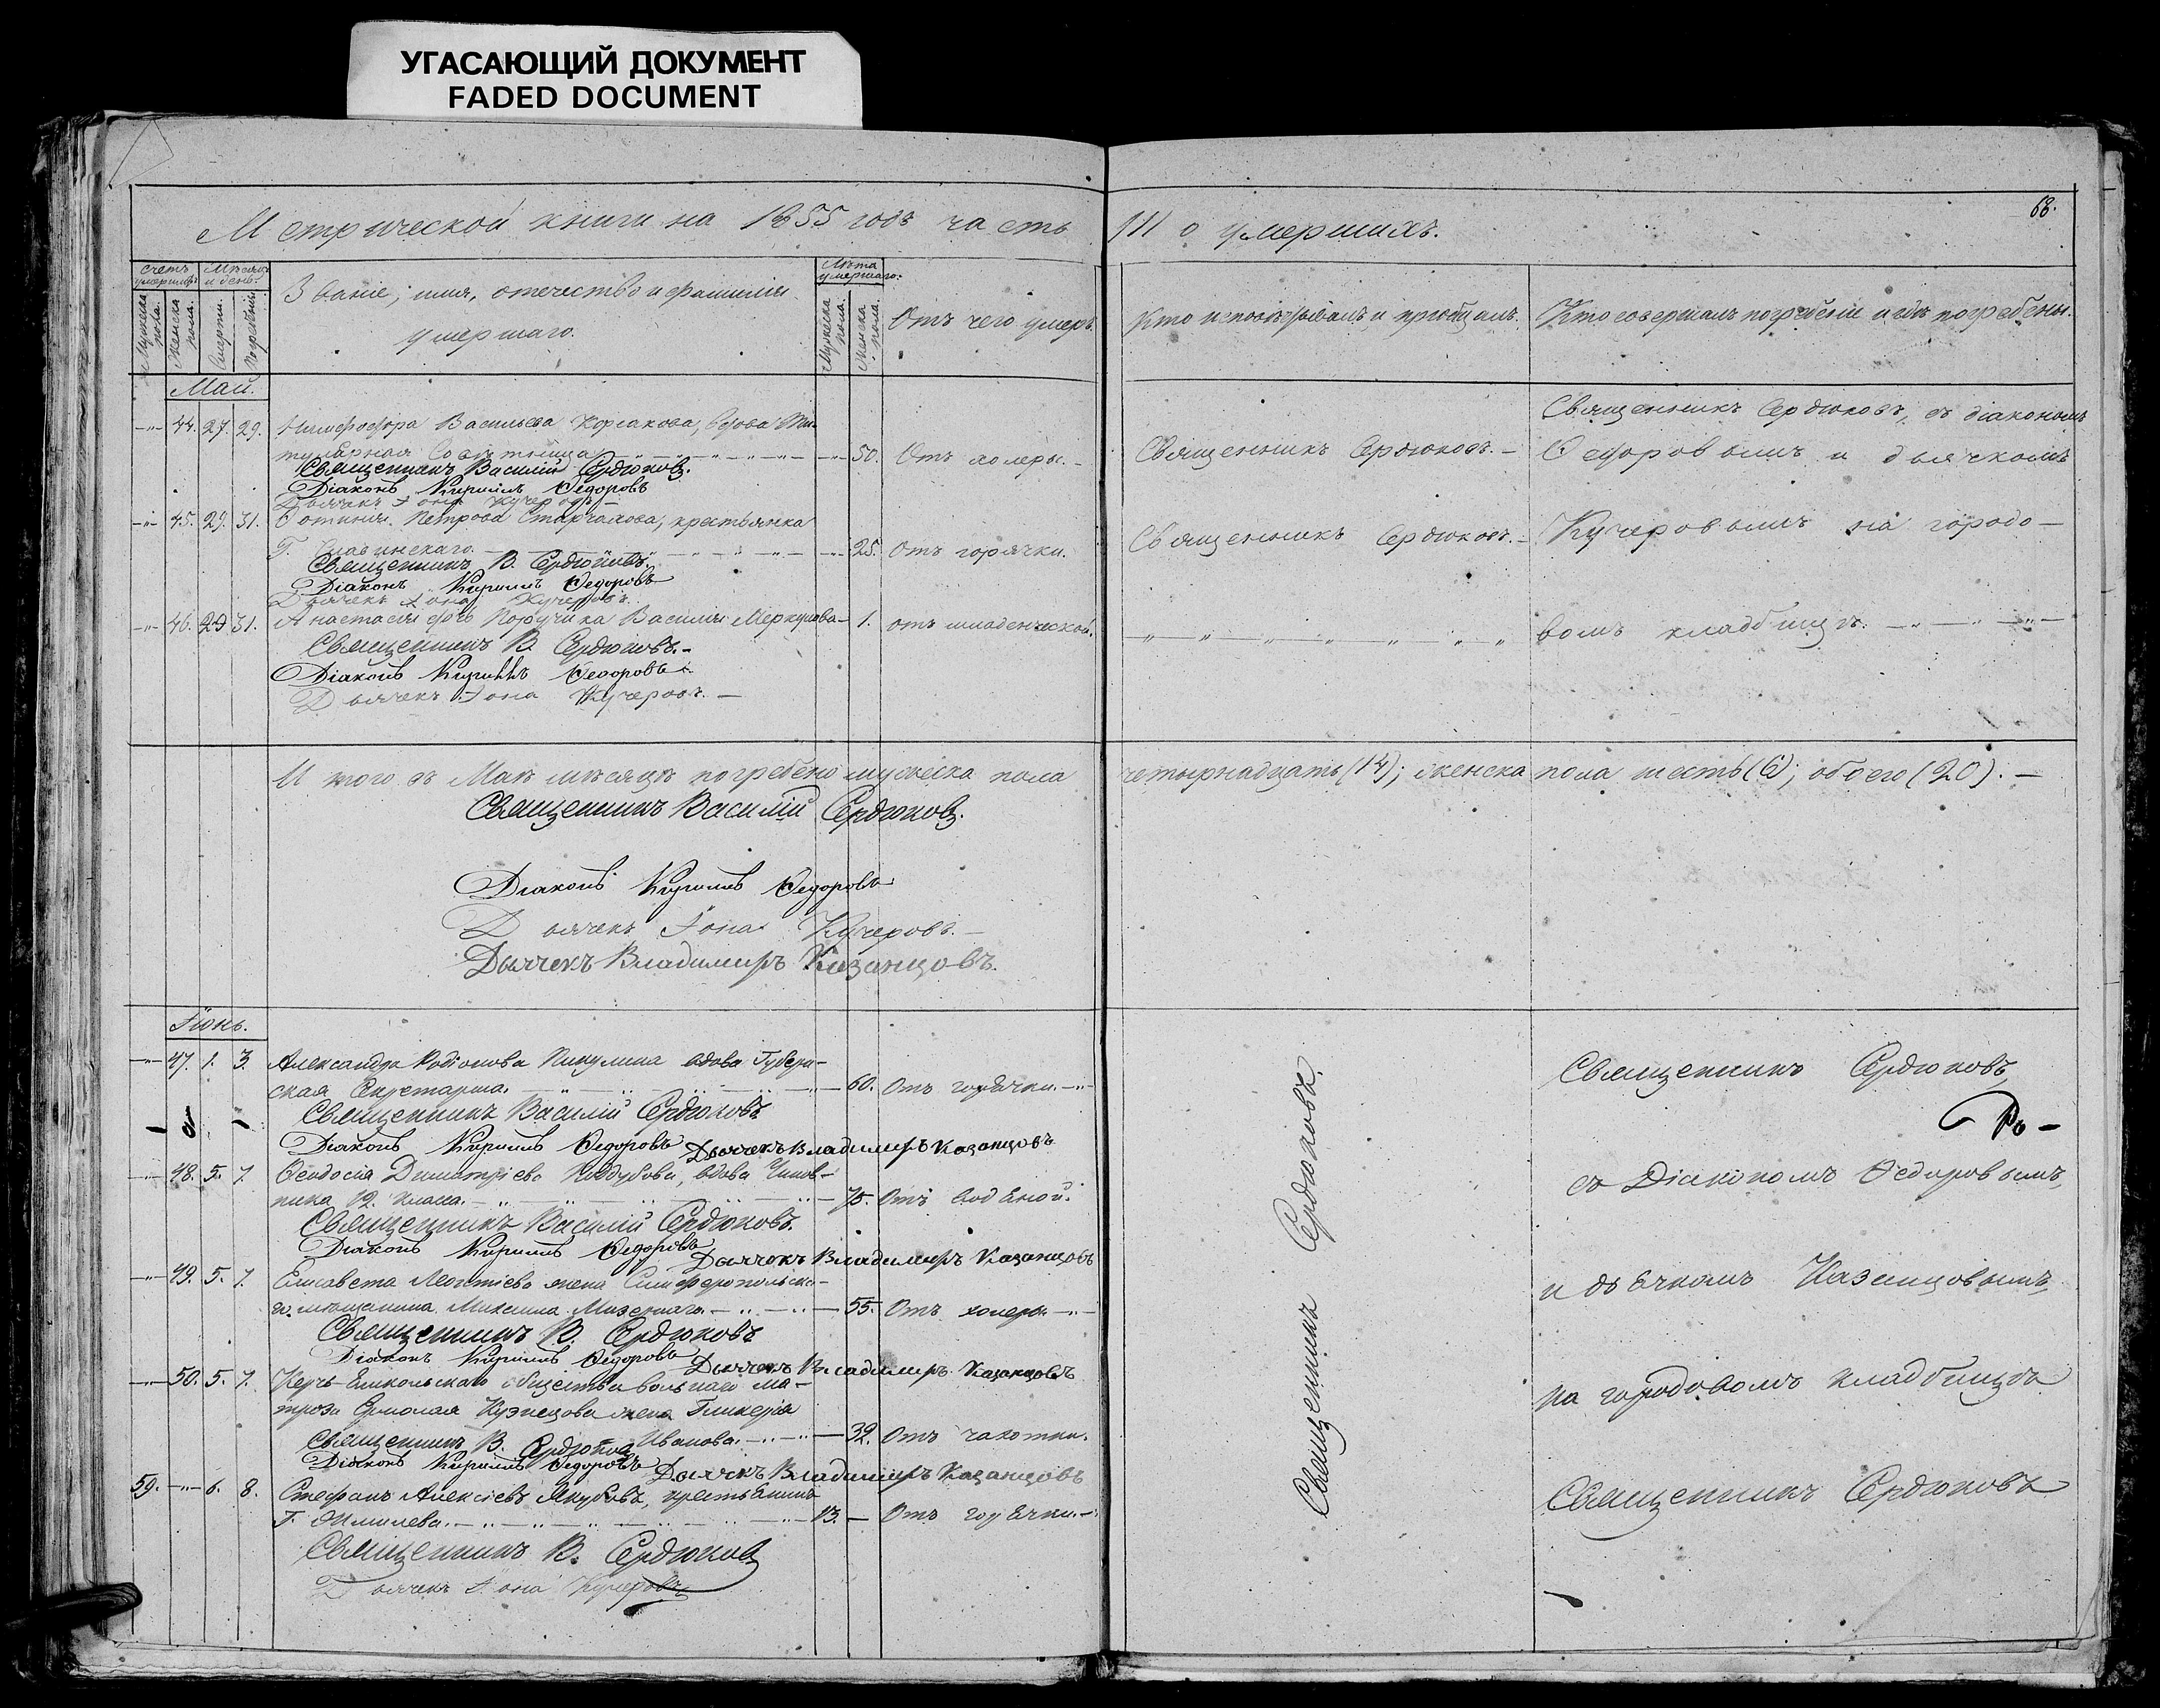 УГАСАЮЩИЙ ДОКУМЕНТ
FADED DOCUMENT
68.
Метрической книги на 1855 годъ часть III о умершихъ.
Счетъ умершихъ
Мѣсяцъ и день.
Мужеска пола.
Женска пола.
Смерти.
Погребенія.
Званіе, имя, отечество и фамилія
умершаго.
Лѣта умершаго.
Мужеска пола.
Женска пола.
Отъ чего умеръ.
Кто исповѣдывалъ и пріобщалъ.
Кто совершалъ погребеніе и гдѣ погребены.
Май.
44. 27. 29. Нимфодора Васильева Корсакова, вдова Ти-
тулярная Совѣтница 50. Отъ холеры. Священникъ Сердюковъ.
Священникъ Василій Сердюковъ.
Діаконъ Кириллъ Ѳедоровъ
Дьячекъ Іона Кучеровъ
45. 29. 31. Фотинія Петрова Старчакова, крестьянка
Г. 25. Отъ горячки. Священникъ Сердюковъ.
Священникъ В. Сердюковъ.
Діаконъ Кириллъ Ѳедоровъ
Дьячекъ Іона Кучеровъ.
46. 29 31. Анастасія дчь Поручика Василія Меркулова 1. отъ младенческой.
Священникъ В. Сердюковъ.
Діаконъ Кириллъ Ѳедоровъ
Дьячекъ Іона Кучеровъ.
Священникъ Сердюковъ, съ діакономъ
Ѳедоровымъ и дьячкомъ
Кучеровымъ на городо-
вомъ кладбищѣ.
И того въ Маѣ мѣсяцѣ погребено мужеска пола четырнадцать (14); женска пола шесть (6); обоего (20).
Священникъ Василій Сердюковъ.
Діаконъ Кириллъ Ѳедоровъ
Дьячекъ Іона Кучеровъ.
Дьячекъ Владимиръ Казанцовъ.
Іюнь.
47. 1. 3. Александра Родіонова Пикулина вдова Губерн-
ская Секретарша. 60. Отъ горячки.
Священникъ Василій Сердюковъ
Діаконъ Кириллъ Ѳедоровъ Дьячекъ Владимиръ Казанцовъ
48. 5. 7. Ѳеодосія Димитріева Поддубова, вдова Чинов-
ника 12. Класса. 75. Отъ водяной.
Священникъ Василій Сердюковъ.
Діаконъ Кириллъ Ѳедоровъ Дьячокъ Владимиръ Казанцовъ
49. 5. 7. Елисавета Леонтіева жена Симферопольска-
го мѣщанина 55. Отъ холеры.
Священникъ В. Сердюковъ
Діаконъ Кириллъ Ѳедоровъ Дьячекъ Владимиръ Казанцовъ
50. 5. 7. Керчь-Еникольскаго общества вольнаго ма-
троза Ермолая Кузнецова жена Гликерія
Иванова. 32. Отъ чахотки.
Священникъ В. Сердюковъ
Діаконъ Кириллъ Ѳедоровъ Дьячекъ Владимиръ Казанцовъ
59. 6. 8. Стефанъ Алексіевъ Якубовъ, крестьянинъ
Г. 13. Отъ горячки.
Священникъ В. Сердюковъ
Дьячекъ Іона Кучеровъ
Священникъ Сердюковъ.
Священникъ Сердюковъ
съ Діакономъ Ѳедоровымъ,
и дьячкомъ Казанцовымъ
на городовомъ кладбищѣ
Священникъ Сердюковъ